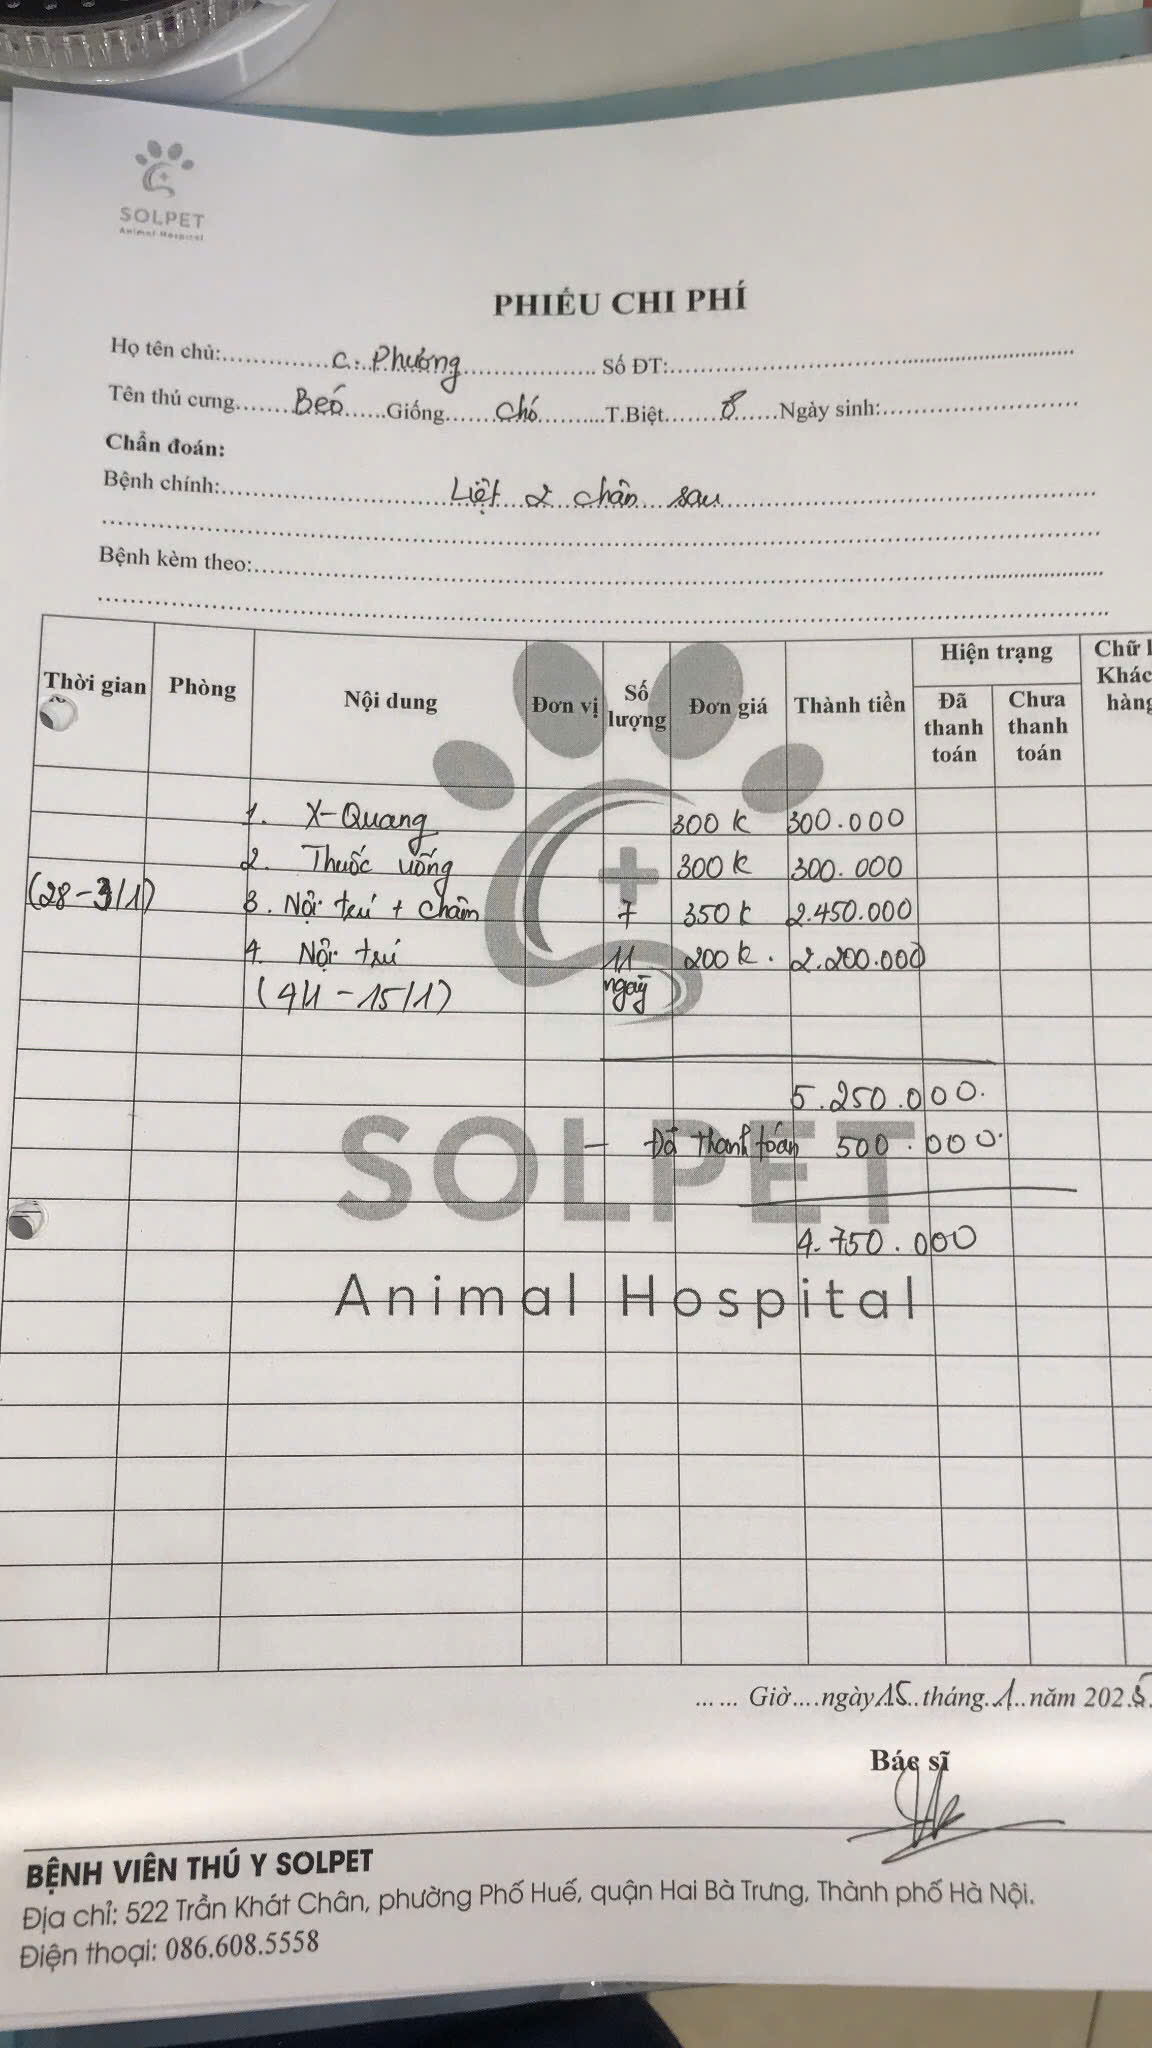 SOLPET
Animal Hospital
PHIẾU CHI PHÍ
Họ tên chủ:..........C. Phương.......... Số ĐT:..........
Tên thú cưng.......Beó......Giống......Chó..........T.Biệt.......♂......Ngày sinh:..........
Chẩn đoán:
Bệnh chính:..........Liệt 2 chân sau..........
Bệnh kèm theo:..........
Thời gian Phòng Nội dung Đơn vị Số lượng Đơn giá Thành tiền Hiện trạng Chữ
Khác
hàng
Đã thanh toán Chưa thanh toán
1. X-Quang 300 k 300.000
2. Thuốc uống 300 k 300.000
(28-3/1) 3. Nội trú + châm 7 350 k 2.450.000
4. Nội trú 11 200 k. 2.200.000
(4/1 - 15/1) ngày
5.250.000.
- Đã thanh toán 500.000.
4.750.000
SOLPET
Animal Hospital
...... Giờ ....ngày 15..tháng.1..năm 2025.
Bác sĩ
BỆNH VIÊN THÚ Y SOLPET
Địa chỉ: 522 Trần Khát Chân, phường Phố Huế, quận Hai Bà Trưng, Thành phố Hà Nội.
Điện thoại: 086.608.5558